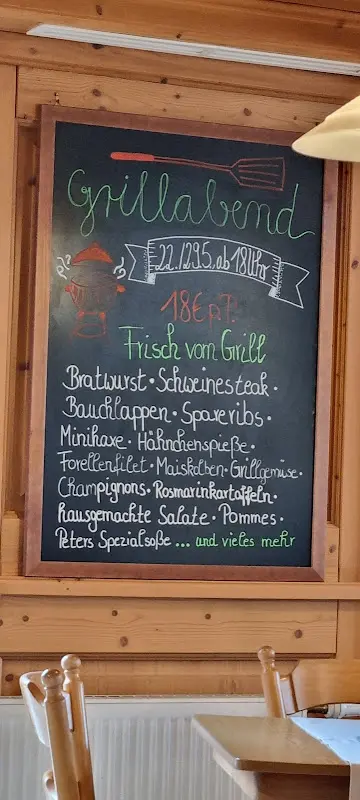 Grillabend
22./29.5. ab 18 Uhr
18€ p.P.
Frisch vom Grill
Bratwurst · Schweinesteak ·
Bauchlappen · Spareribs ·
Minihaxe · Hähnchenspieße ·
Forellenfilet · Maiskolben · Grillgemüse ·
Champignons · Rosmarinkartoffeln ·
hausgemachte Salate · Pommes ·
Peters Spezialsoße ... und vieles mehr